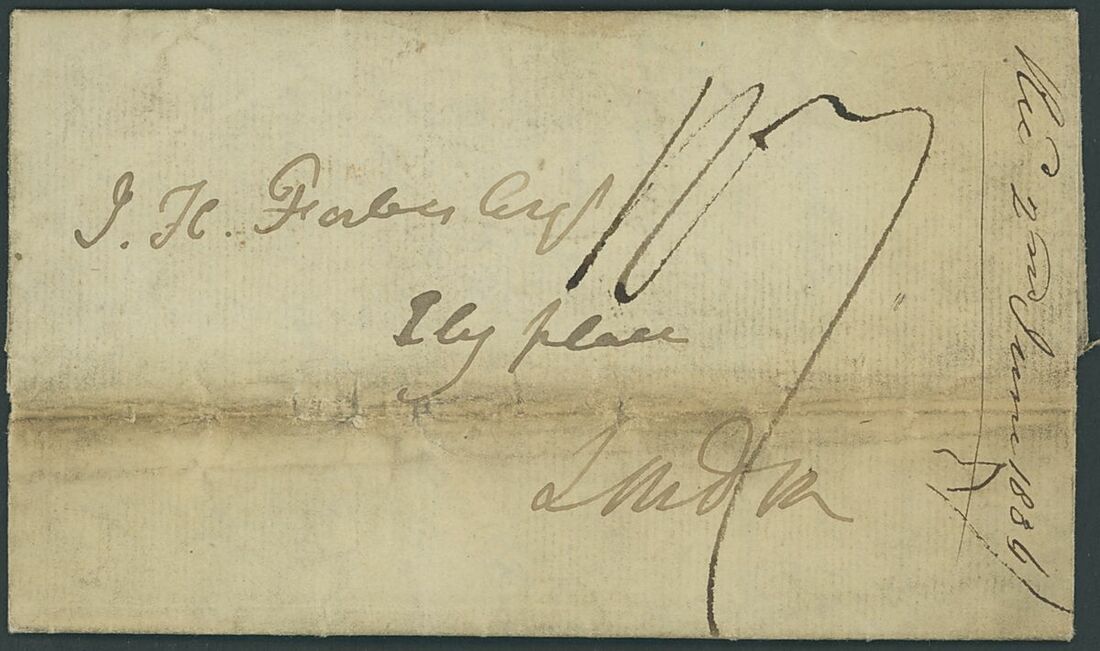 J. H. Forbes Esqr
Ely place
London
1/7
Rec 2nd June 1836